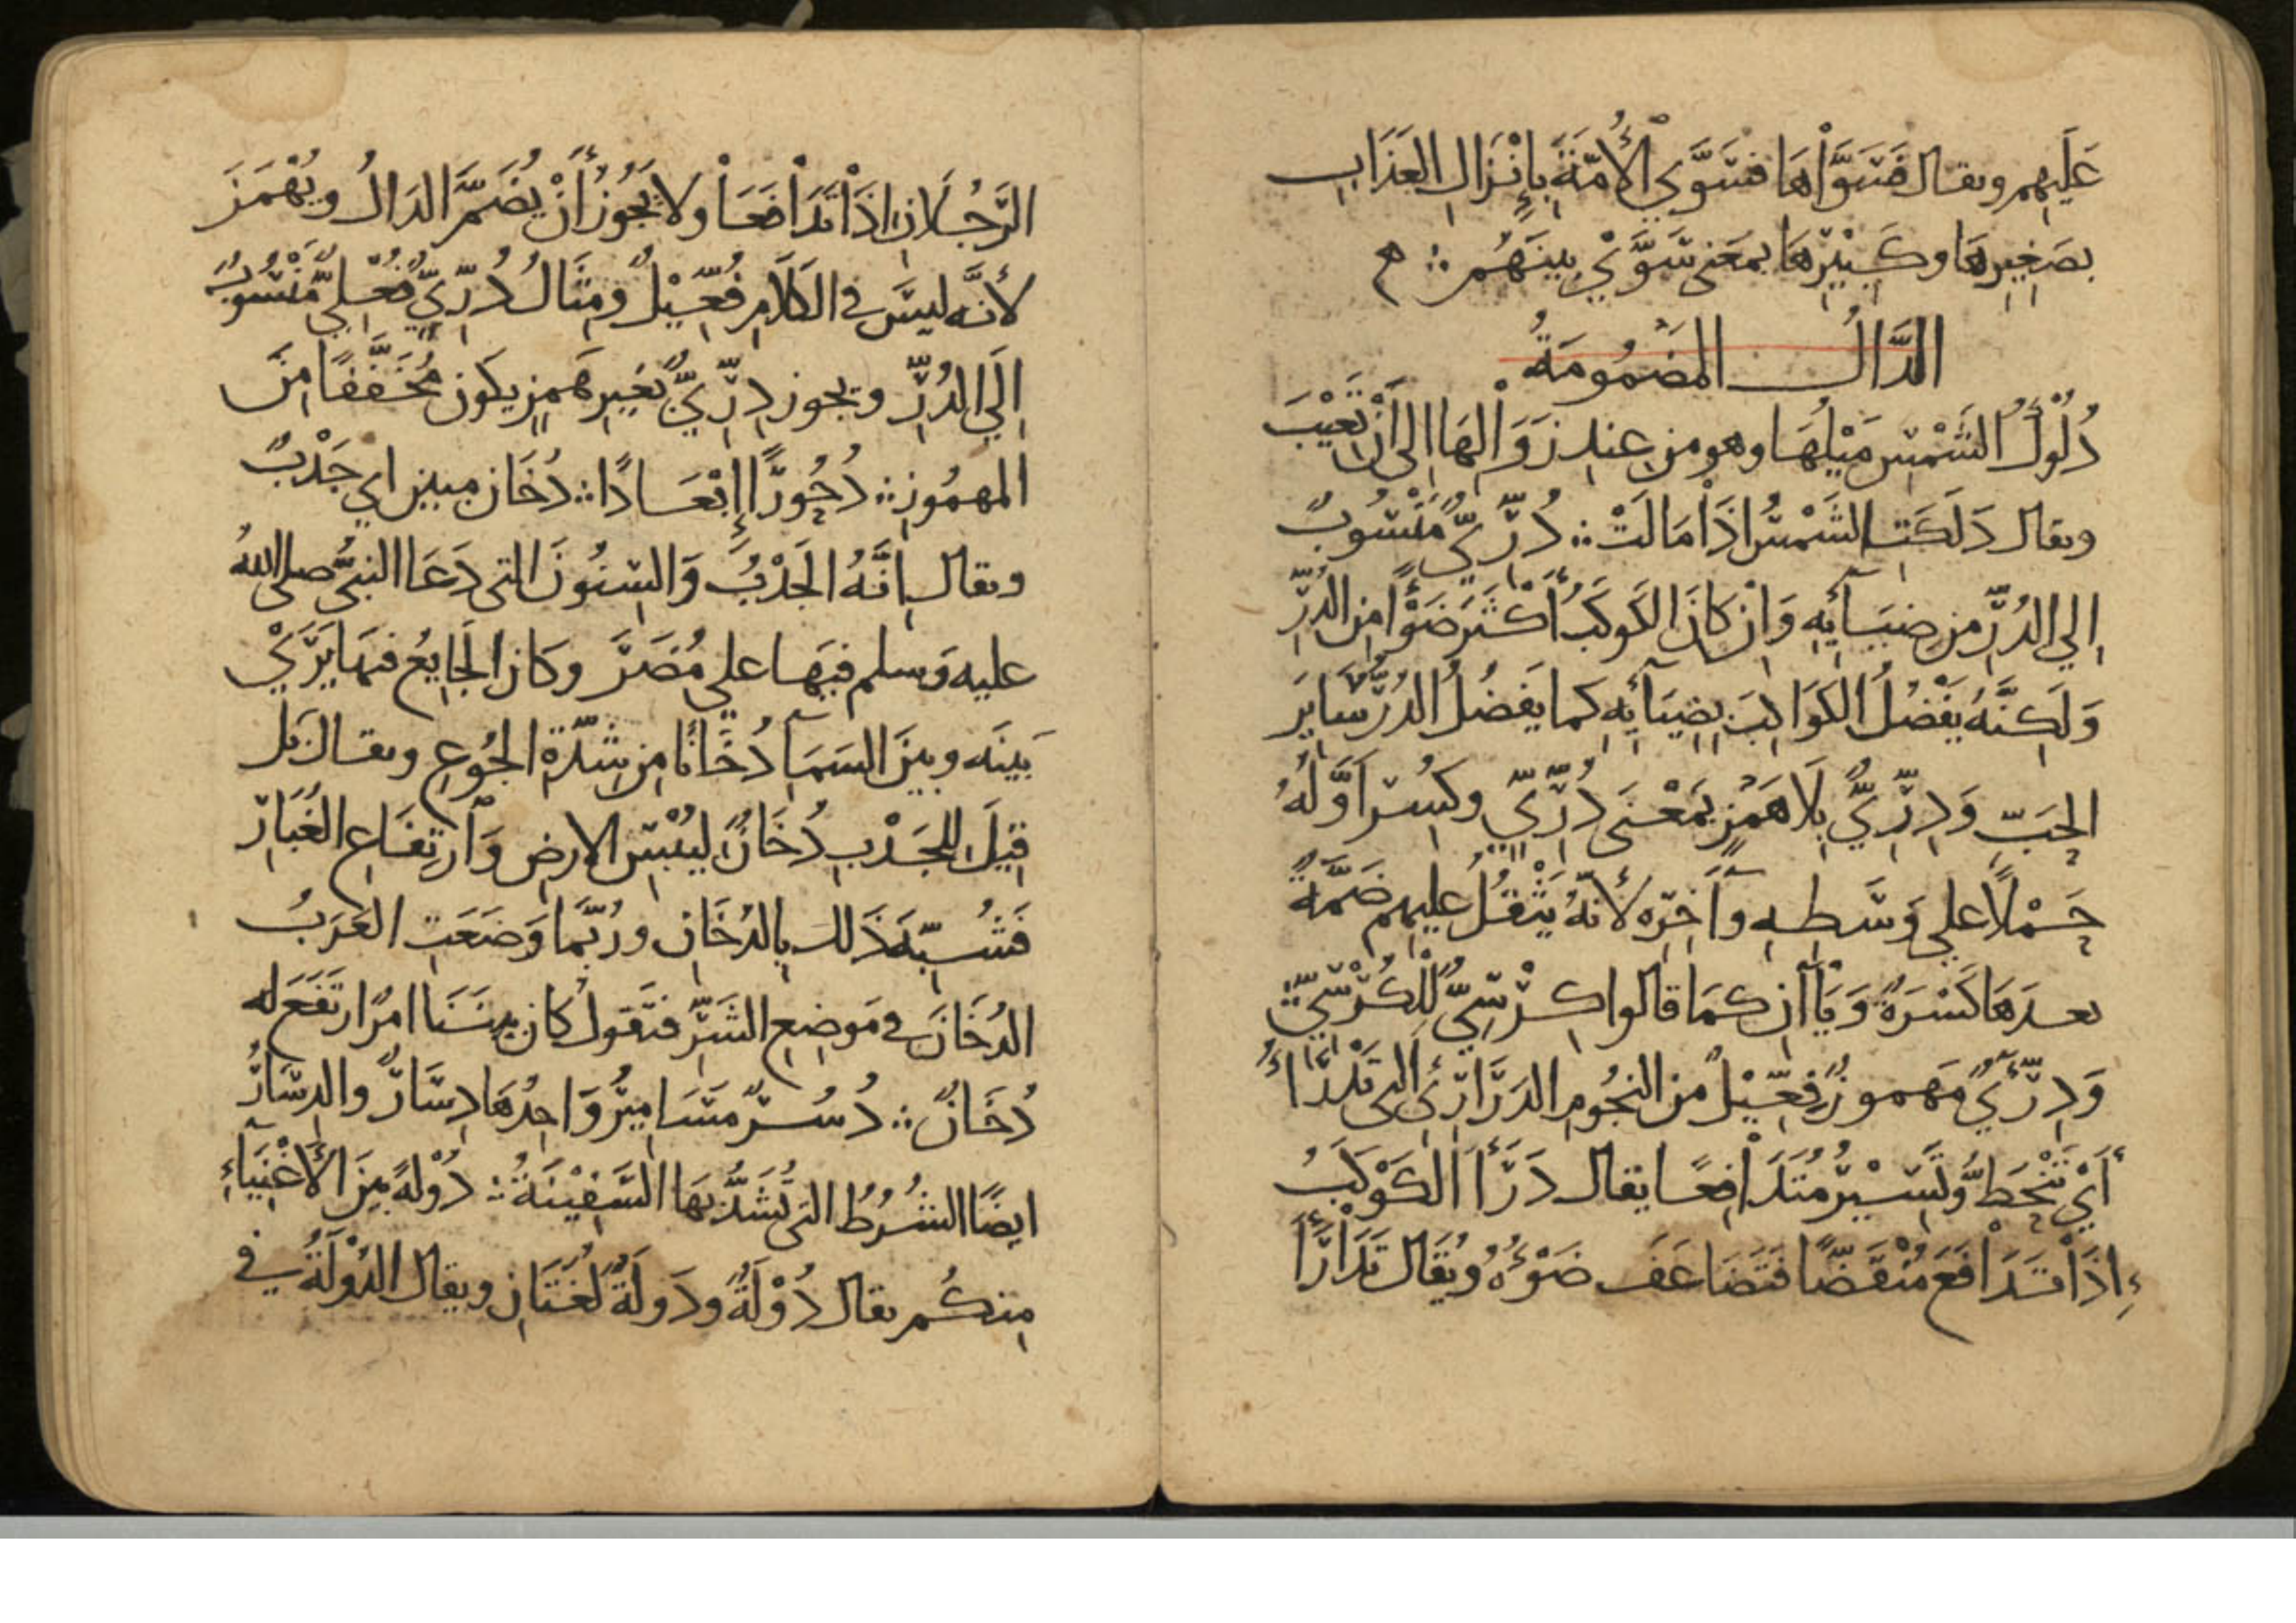 عَلَيهِم ويقال فَسَوَّاهَا فسَوَّي الأُمَّةَ بِإِنْزَالِ العَذَابِ
بصَغِيرِهَا وكَبِيْرِهَا بمَعَنى سَوَّيْ بينَهُم ∴
الدَّالُ المَضمُومَةُ
دُلُوْكُ الشَّمْسِ مَيْلُهَا وهو من عِندِ زَوَالِهَا إلى أَنْ تَغِيْبَ
ويقال دَلَكَتِ الشَّمْسُ إذَا مَالَتْ ∴ دُرِّيٌّ مَنْسُوبٌ
إلي الدُرِّ من ضِيَآئِهِ وَإنْ كَانَ الكَوكَبُ أَكْثَرَ ضَوْءًا مِن الدُرِّ
وَلَكِنَّهُ يَفْضُلُ الكَوَاكِبَ بِضِيَآئِهِ كما يَفضُلُ الدُرُّ سَايِرَ
الحَبِّ وَدِرِّيٌّ بِلَا هَمْزٍ بمَعْنَى دُرِّيٍّ وكُسِرَ أَوَّلُهُ
حَمْلًا علي وَسَطِهِ وآخِرِه لأنَّهُ يَثْقُلُ عليهِم ضَمَّةٌ
بعدَهَا كَسْرَةٌ وَيَاآنِ كمَا قالوا كِرْسِيٌّ لِلْكُرْسِيِّ
وَدِرِّيءٌ مَهموزٌ فِعِّيْلٌ من النجُومِ الدَرَارِئِ التى تَدْرَأُ
أَيْ تَنْحَطُّ وتَسِيْرُ مُتَدَافِعًا يقال دَرَأَ الكَوْكَبُ
إذَا تَدَافَعَ مُنْقَضًّا فَتَضَاعَفَ ضَوْءُهُ ويُقَال تَدَارَأَ
الرَّجُلَانِ إذَا تَدَافَعَا ولا يَجُوزُ أَنْ يُضَمَّ الدَالُ ويُهْمَزَ
لأنَّه ليسَ في الكَلَامِ فُعِّيْلٌ ومِثَالُ دُرِّيٌّ فُعْلِيٌّ مَنْسُوبٌ
إلَي الدُرِّ ويجوز دِرِّيٌّ بغَيرِ هَمزٍ يكون مُخَفَّفًا مِنَ
المهمُوزِ ∴ دُحُورًا إِبْعَادًا ∴ دُخَان مبين اي جَدْبٌ
ويقال إنَّهُ الجَدْبُ وَالسِنُونَ التى دَعَا النبيُّ صلى اللهُ
عليه وَسلم فيهَا علي مُضَرَ وكان الجَايِعُ فيهَا يَرَيْ
بَينَه وبينَ السَمَآ دُخَانًا من شِدَّةِ الجُوعِ ويقال بَل
قِيلَ للجَدْبِ دُخَانٌ ليُبْسِ الارضِ وَارتِفَاعِ الغُبَارِ
فَشُبِّهَ ذَلك بِالدُخَانِ ورُبَّمَا وَضَعَتِ العَرَبُ
الدُخَانَ في مَوضِعِ الشَرِّ فتَقول كان بينَنَا امرٌ ارتَفَعَ له
دُخَانٌ ∴ دُسُرٌ مسَامِيرُ وَاحِدُهَا دِسَارٌ والدِسَارُ
ايضًا الشُرُطُ التى تُشَدُّ بهَا السَّفِيْنَةُ ∴ دُوْلةً بينَ الأَغْنِيَآءِ
مِنكُم يقال دُوْلَةٌ ودَولَةٌ لُغَتَانِ ويقال الدُوْلَةُ في